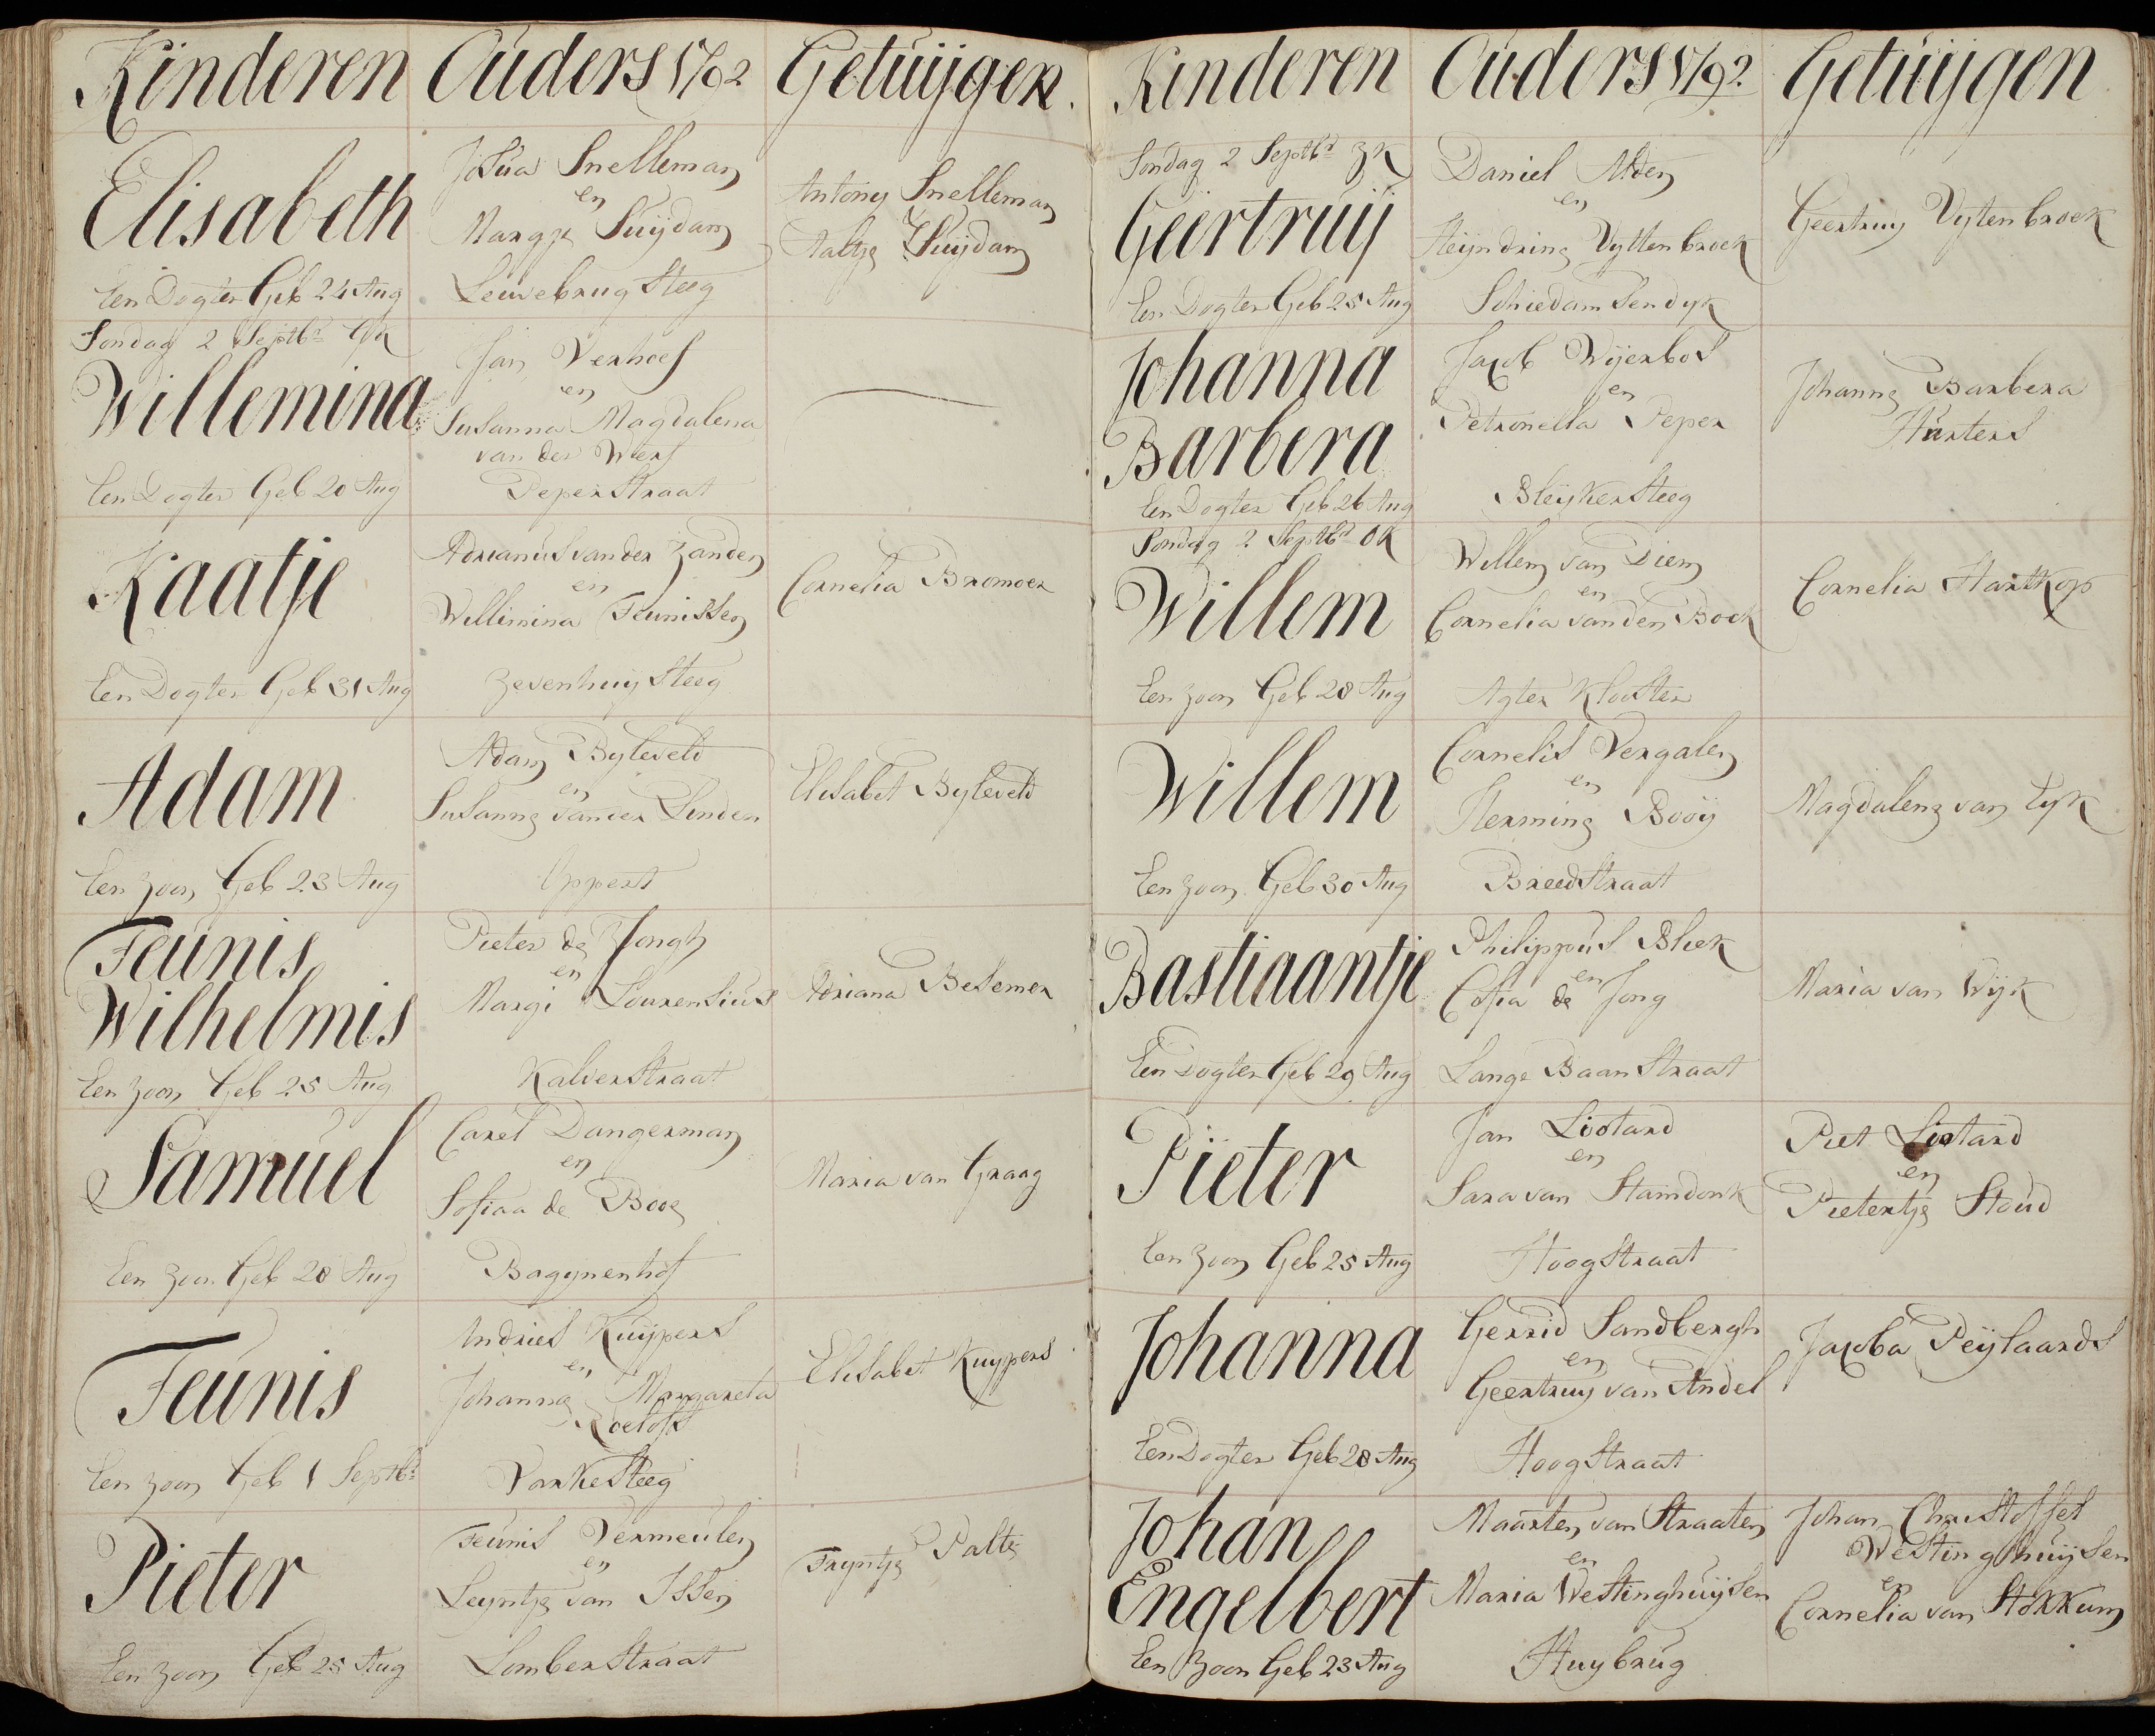 Kinderen Ouders 1792 Getuijgen.
Elisabeth
Een Dogter Geb 24 Aug
Josua Snelleman
en
Margje Suijdam
Leuvebrug Steeg
Antony Snelleman
Aaltje Suijdam
Sondag 2 Septbr GK
Willemina
Een Dogter Geb 20 Aug
Jan Verhoef
en
Susanna Magdalena
van der Werf
Peper Straat
Kaatje
Een Dogter Geb 31 Aug
Adrianus van der Zanden
en
Willimina Teunissen
Zevenhuij Steeg
Cornelia Bromoer
Adam
Een Zoon Geb 23 Aug
Adam Byleveld
en
Susanna van der Linden
Oppert
Elisabet Byleveld
Teunis
Wilhelmis
Een Zoon Geb 25 Aug
Pieter de Jongh
en
Margi Lourensius
Kalver Straat
Adriana Besemer
Samuel
Een Zoon Geb 28 Aug
Carel Dangerman
en
Sofiaa de Booy
Bagynenhof
Maria van Graag
Teunis
Een Zoon Geb 1 Septbr
Andries Kuijpers
en
Johanna Margareta
Roelofs
Varke Steeg
Elisabet Kuypers
Pieter
Een Zoon Geb 25 Aug
Teunis Vermeulen
en
Leyntje van Issen
Lomber Straat
Tryntje Palte
Kinderen Ouders 1792 Getuijgen
Sondag 2 Septbr ZK
Geertruij
Een Dogter Geb 25 Aug
Daniel Alden
en
Heijndrina Vyttenbroek
Schiedamsendyk
Geertruy Vytenbroek
Johanna
Barbera
Een Dogter Geb 26 Aug
Jacob Wijerbos
en
Petronella Peper
Bleijker Steeg
Johanna Barbera
Hurters
Sondag 2 Septbr OK
Willem
Een Zoon Geb 28 Aug
Willem van Diem
en
Cornelia van den Boek
Agter Klooster
Cornelia Hartkop
Willem
Een Zoon Geb 30 Aug
Cornelis Vergalen
en
Hermina Booij
Breed Straat
Magdalena van Eyk
Bastiaantje
Een Dogter Geb 29 Aug
Philippus Bliek
en
Cofia de Jong
Lange Baan Straat
Maria van Wijk
Pieter
Een Zoon Geb 25 Aug
Jan Liotard
en
Sara van Staindonk
Hoog Straat
Piet Liotard
en
Pietertje Stoud
Johanna
Een Dogter Geb 28 Aug
Gerrid Sandbergh
en
Geertruy van Andel
Hoog Straat
Jacoba Peijlaards
Johan
Engelbert
Een Zoon Geb 23 Aug
Maarten van Straaten
en
Maria Westinghuijsen
Huybrug
Johan Christoffel
Westinghuijsen
en
Cornelia van Stokkum